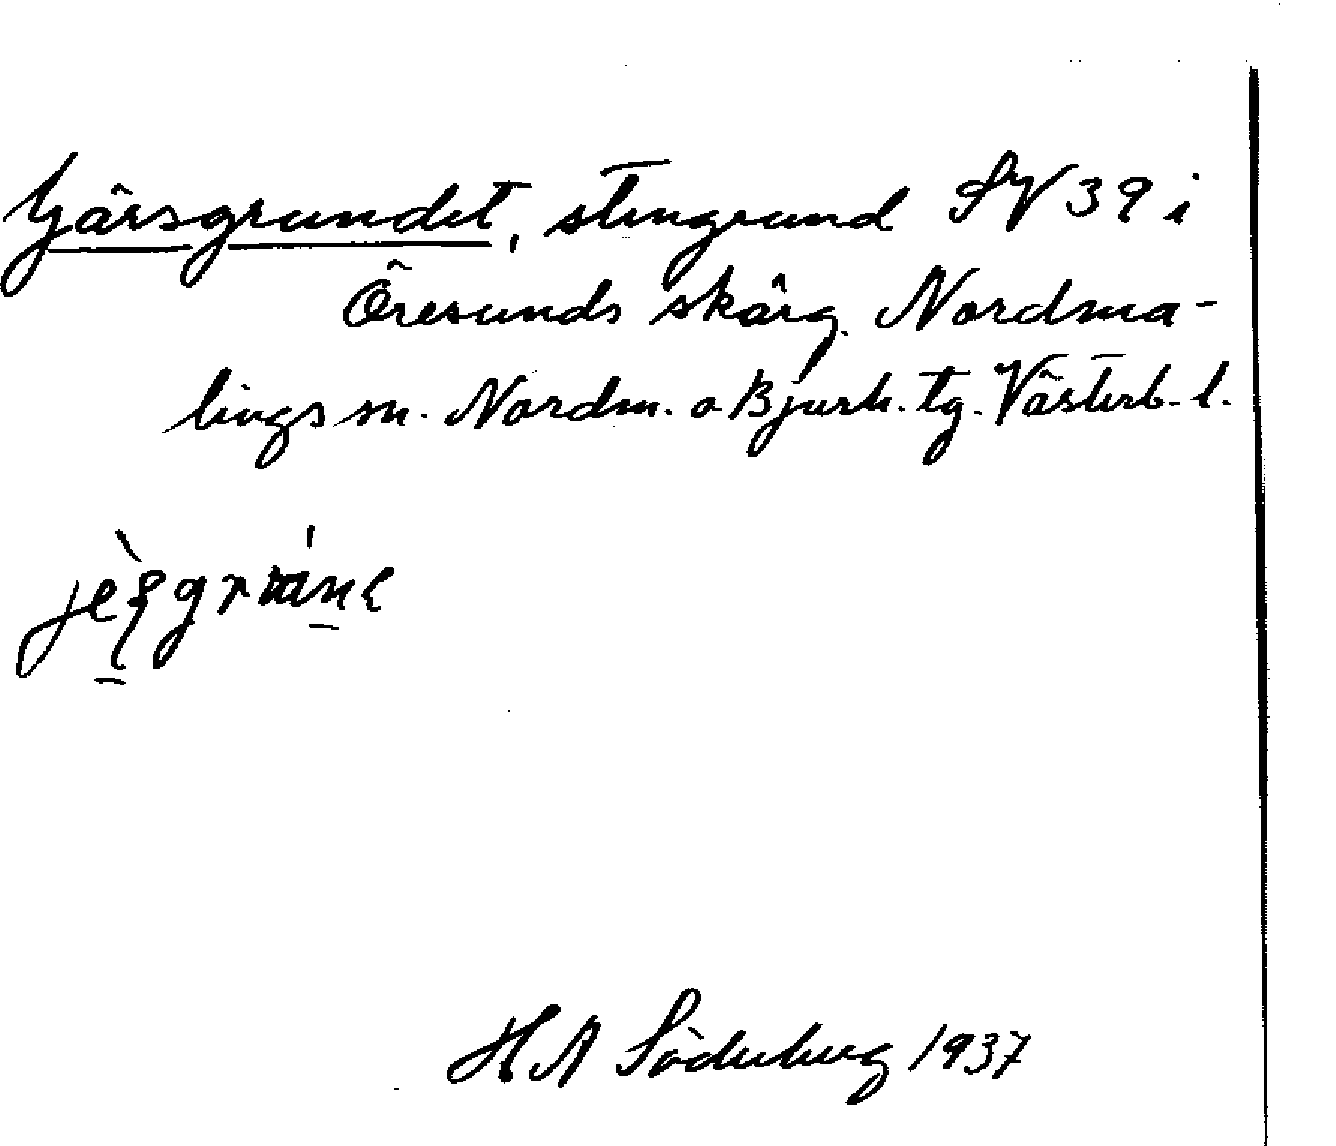 Gärsgrundet, stengrund SV 39 i
Öresunds skärg. Nordma-
lings sn. Nordm. o Bjurh. tg. Västerb. l.
H A Söderberg 1937